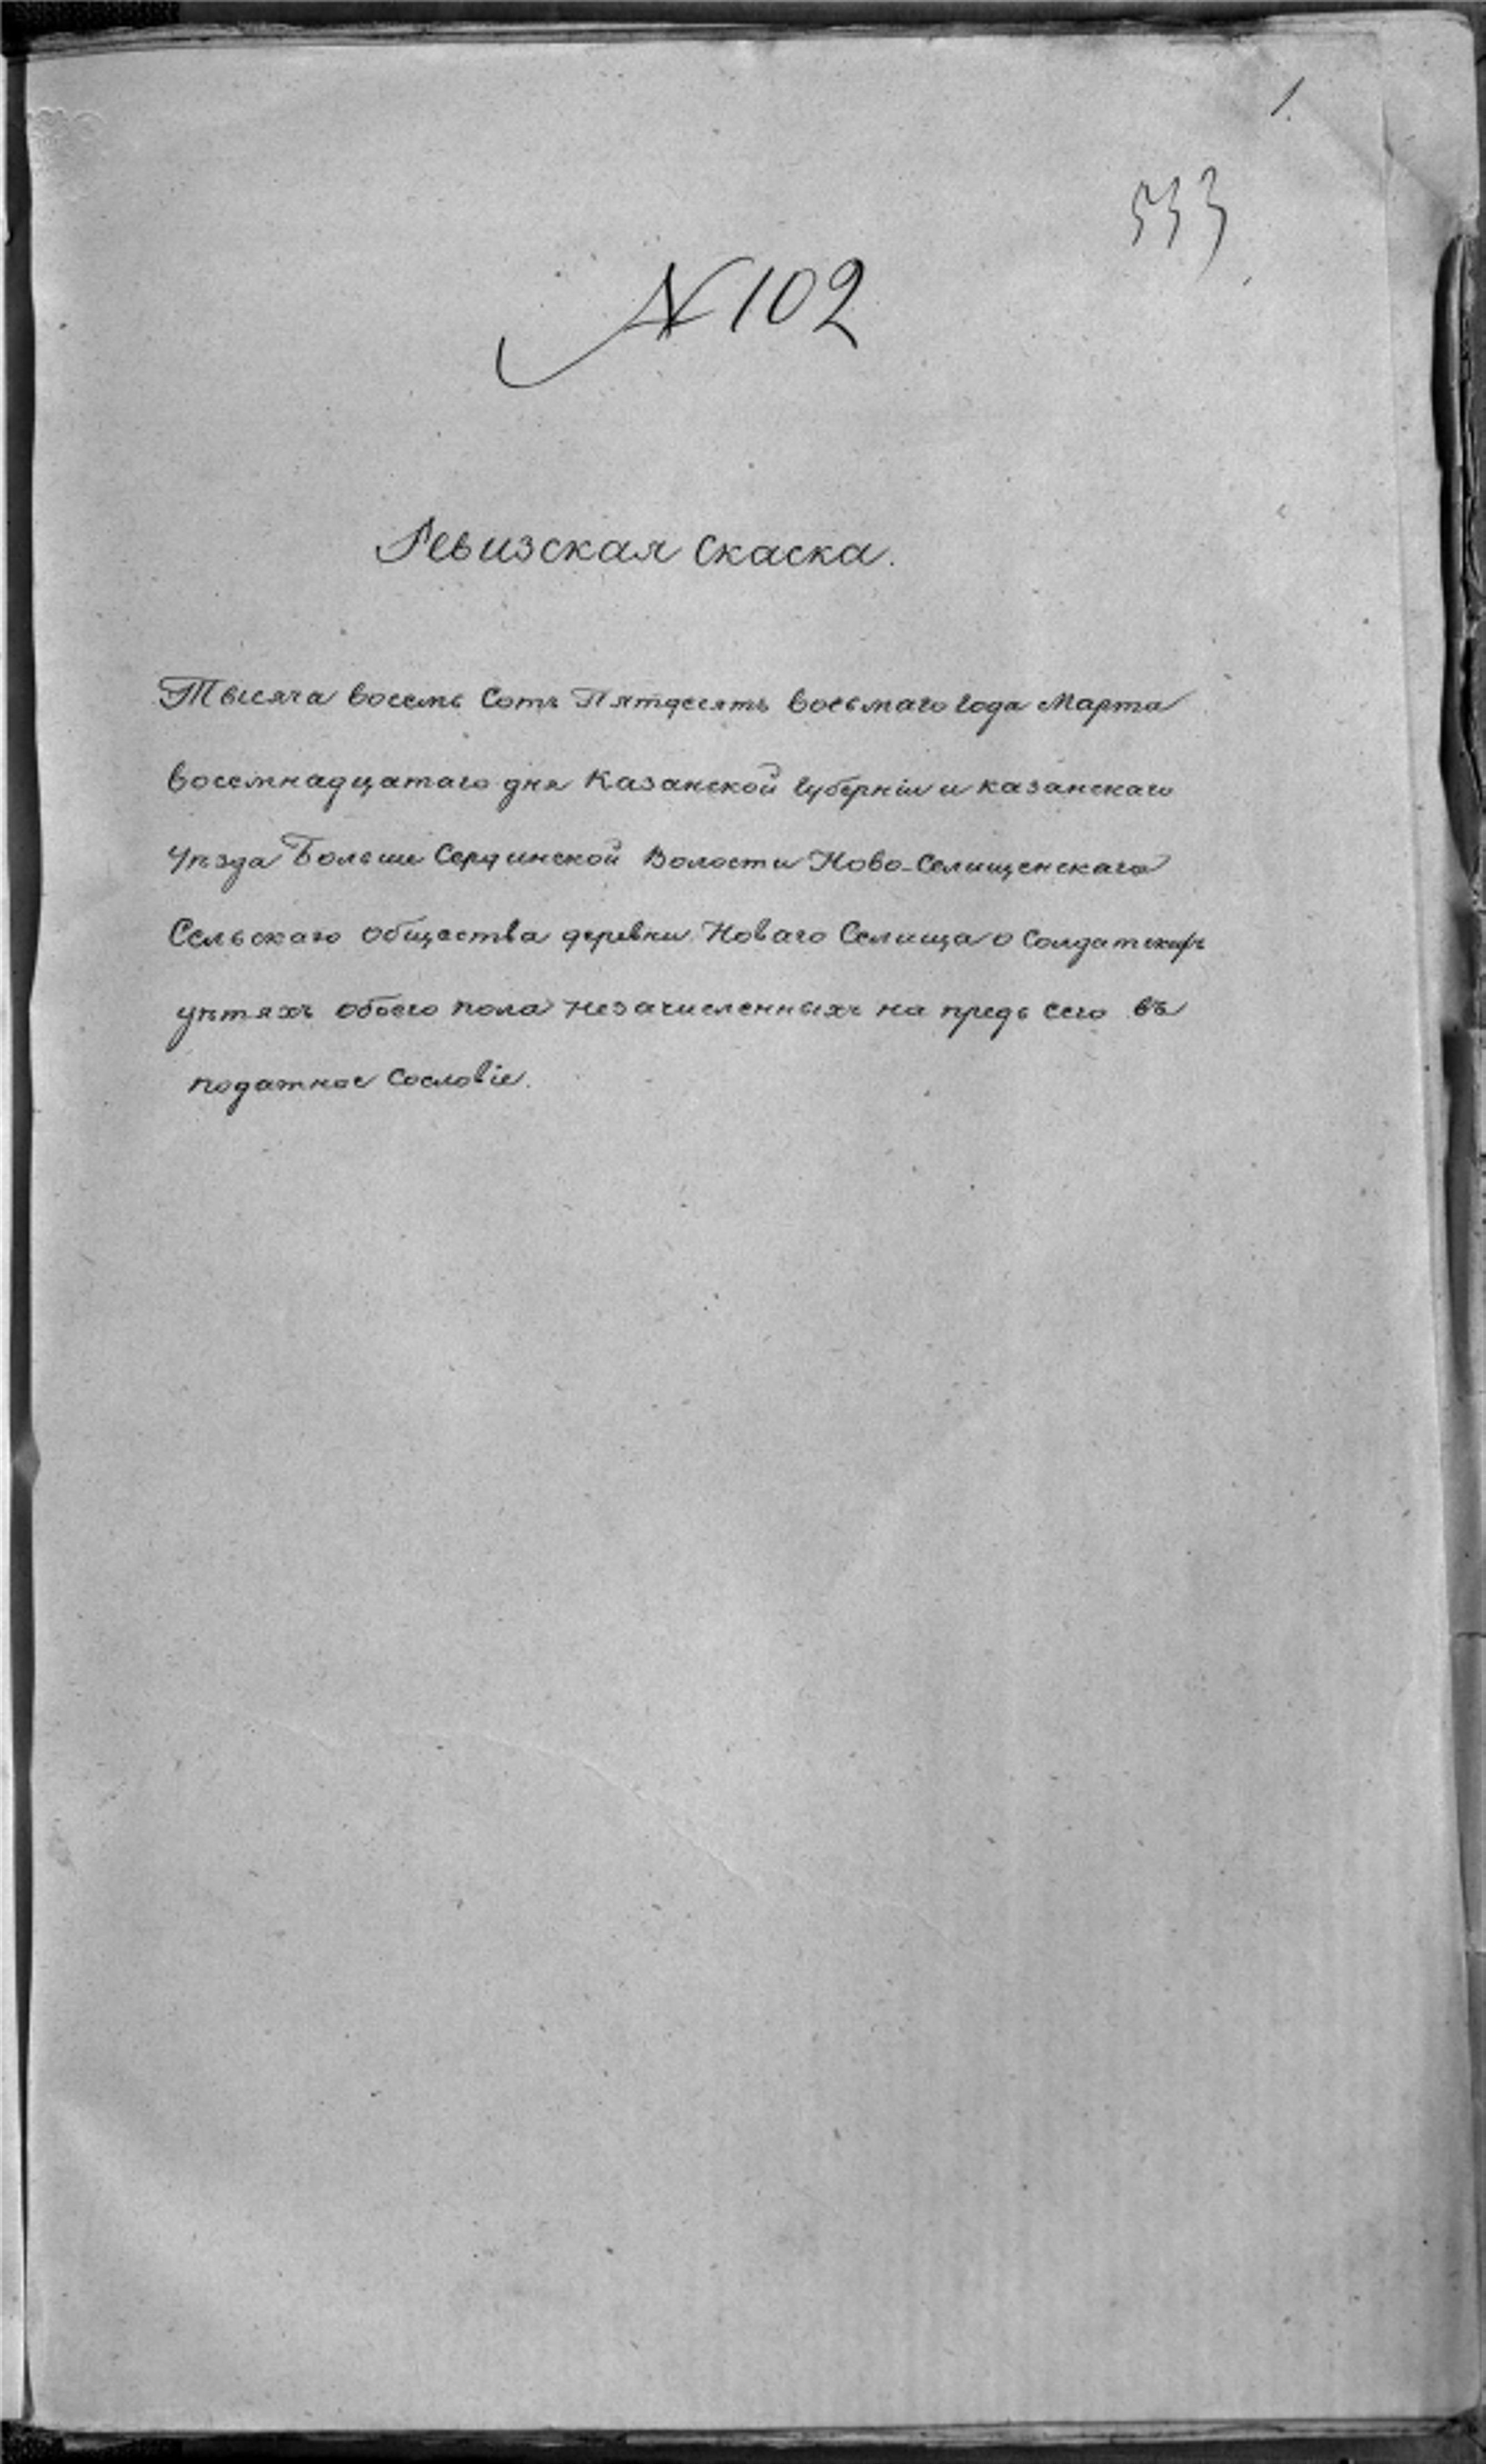 1.
533
№ 102
Ревизская Скаска.
Тысяча восемь Сотъ Пятдесятъ восьмаго года Марта
восемнадцатаго дня Казанской губерніи и казанскаго
уѣзда Больше Сердинской Волости Ново-Селищенскаго
Сельскаго общества деревни Новаго Селища о Солдатскихъ
дѣтяхъ обоего пола незачисленныхъ на предь сего въ
податное Сословіе.